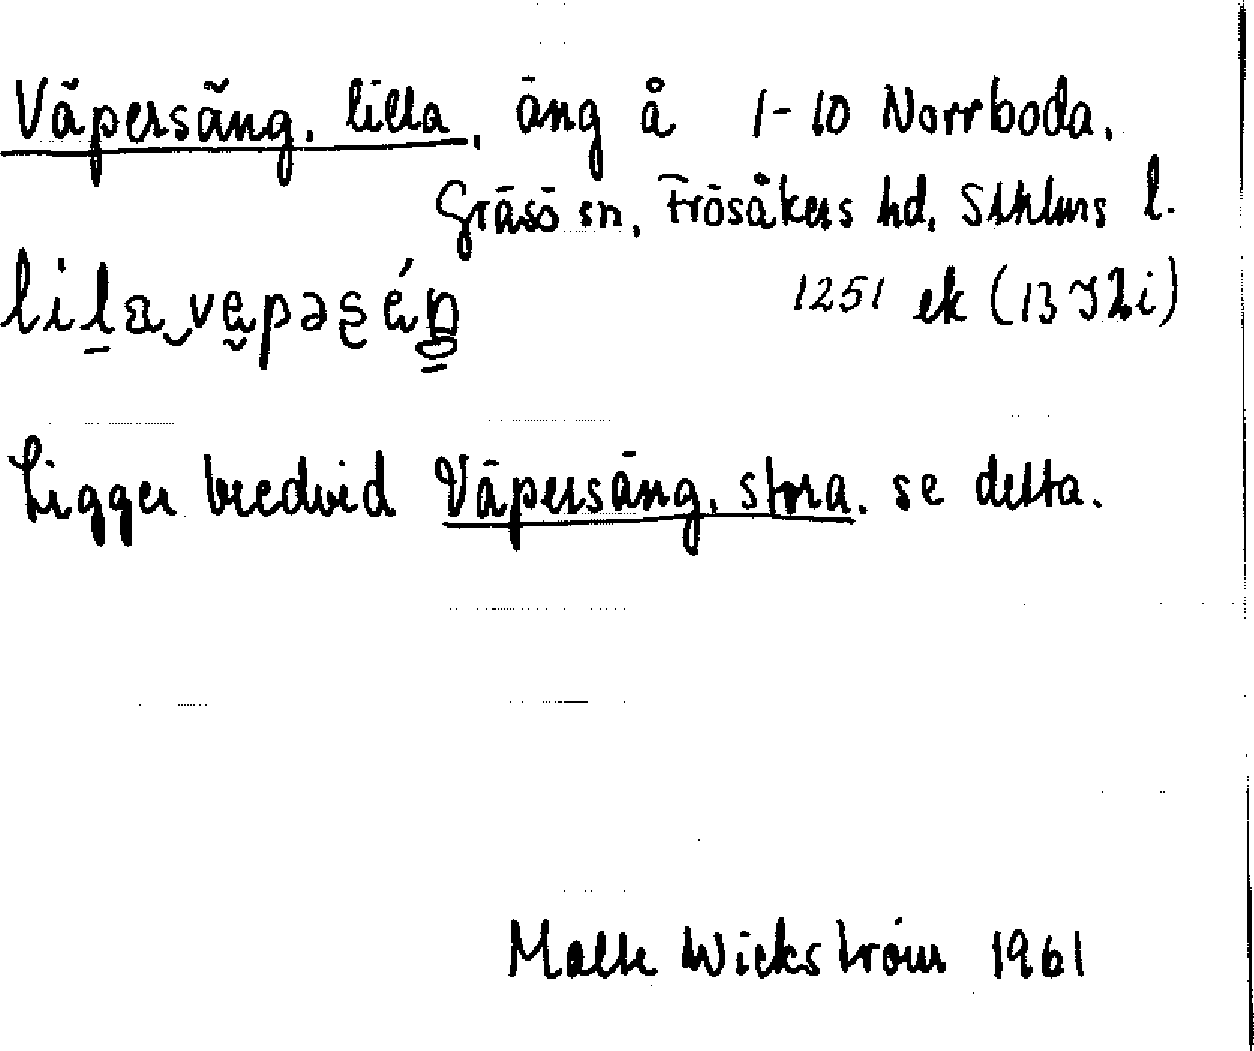 Väpersäng, lilla, äng å 1-10 Norrboda,
Gräsö sn, Frösåkers hd, Sthlms l.
1251 ek (13 I 2i)
Ligger bredvid Väpersäng, stora, se detta.
Malte Wickström 1961